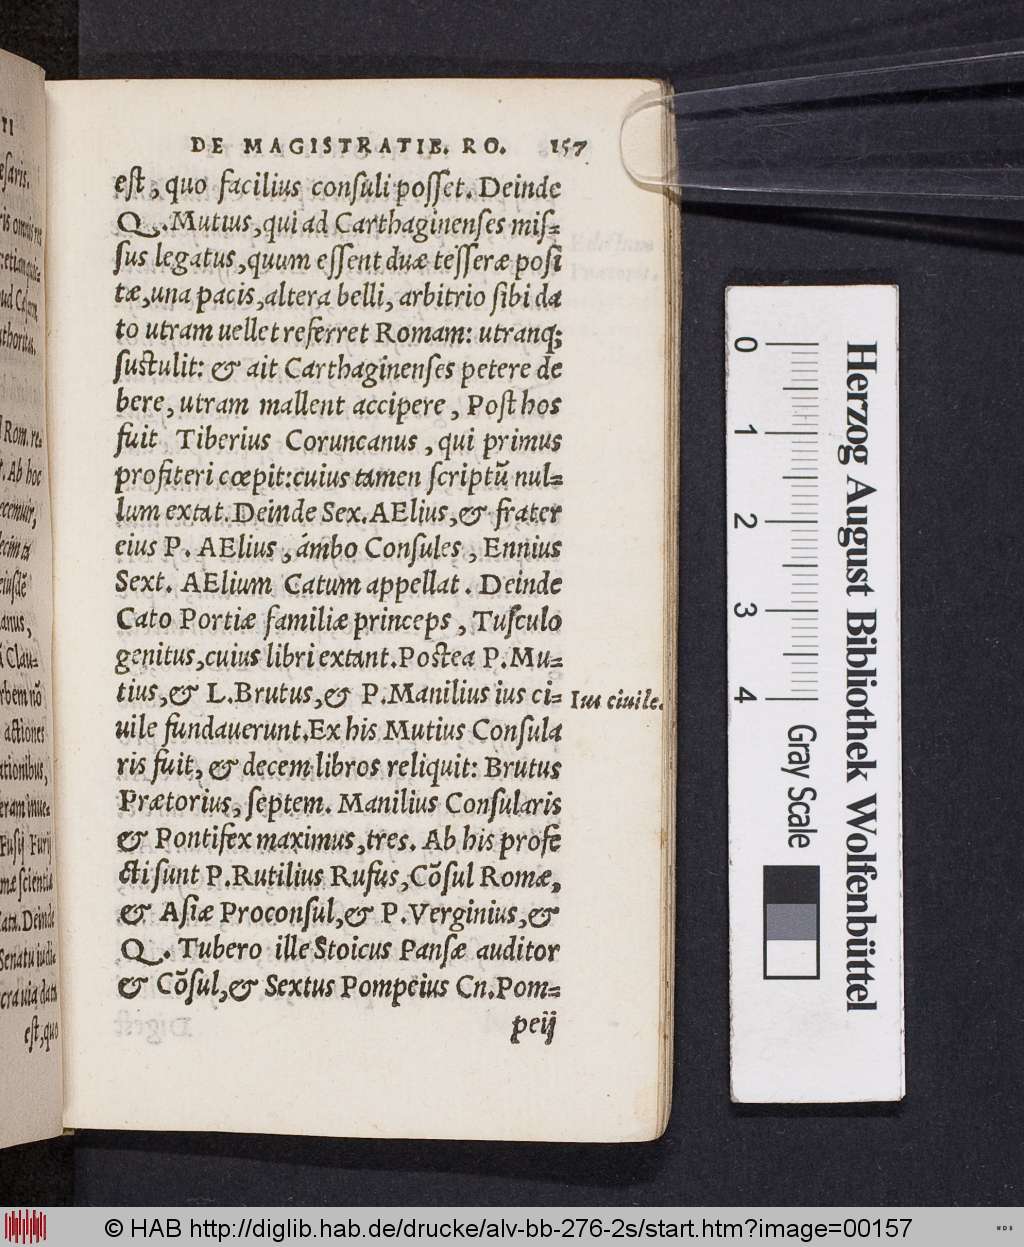 DE MAGISTRATIB. RO. 157
est, quo facilius consuli posset. Deinde
Q. Mutius, qui ad Carthaginenses mis=
sus legatus, quum essent duæ tesseræ posi
tæ, una pacis, altera belli, arbitrio sibi da
to utram uellet referret Romam: utranq;
sustulit: & ait Carthaginenses petere de
bere, utram mallent accipere, Post hos
fuit Tiberius Coruncanus, qui primus
profiteri cœpit: cuius tamen scriptũ nul=
lum extat. Deinde Sex. AElius, & frater
eius P. AElius, ámbo Consules, Ennius
Sext. AElium Catum appellat. Deinde
Cato Portiæ familiæ princeps, Tusculo
genitus, cuius libri extant. Postea P. Mu=
tius, & L. Brutus, & P. Manilius ius ci=
Ius ciuile.
uile fundauerunt. Ex his Mutius Consula
ris fuit, & decem libros reliquit: Brutus
Prætorius, septem. Manilius Consularis
& Pontifex maximus, tres. Ab his profe
cti sunt P. Rutilius Rufus, Cõsul Romæ,
& Asiæ Proconsul, & P. Verginius, &
Q. Tubero ille Stoicus Pansæ auditor
& Cõsul, & Sextus Pompeius Cn. Pom=
peij
0 1 2 3 4
Gray Scale
Herzog August Bibliothek Wolfenbüttel
© HAB http://diglib.hab.de/drucke/alv-bb-276-2s/start.htm?image=00157